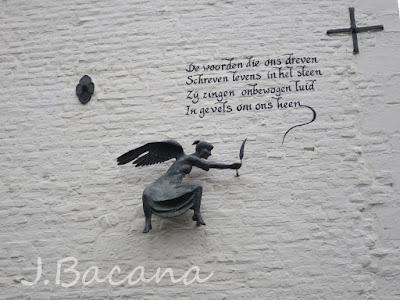 De woorden die ons dreven
Schreven levens in het steen
Zij zingen onbewogen luid
In gevels om ons heen
J.Bacana